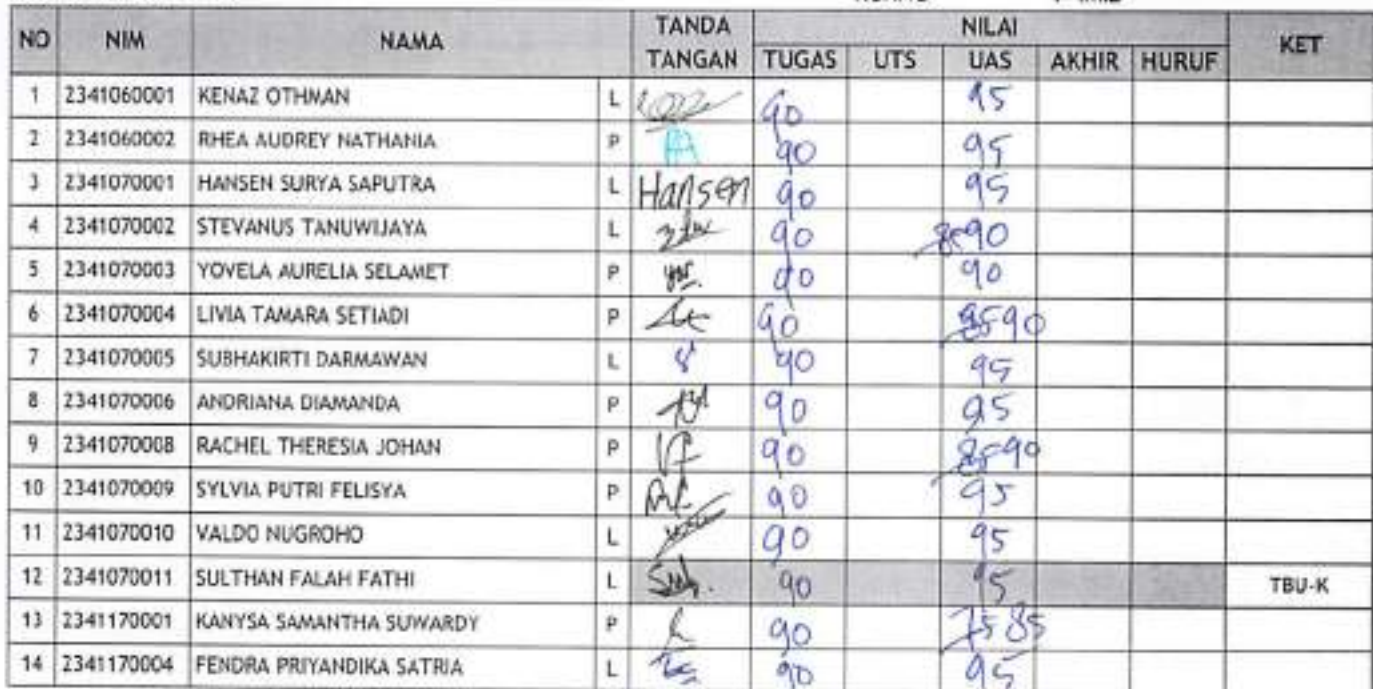 NO NIM NAMA TANDA TANGAN NILAI KET
TUGAS UTS UAS AKHIR HURUF
1 2341060001 KENAZ OTHMAN L 90 95
2 2341060002 RHEA AUDREY NATHANIA P 90 95
3 2341070001 HANSEN SURYA SAPUTRA L Hansen 90 95
4 2341070002 STEVANUS TANUWIJAYA L 90 85 90
5 2341070003 YOVELA AURELIA SELAMET P 90 90
6 2341070004 LIVIA TAMARA SETIADI P 90 85 90
7 2341070005 SUBHAKIRTI DARMAWAN L 90 95
8 2341070006 ANDRIANA DIAMANDA P 90 95
9 2341070008 RACHEL THERESIA JOHAN P 90 85 90
10 2341070009 SYLVIA PUTRI FELISYA P 90 95
11 2341070010 VALDO NUGROHO L 90 95
12 2341070011 SULTHAN FALAH FATHI L 90 95 TBU-K
13 2341170001 KANYSA SAMANTHA SUWARDY P 90 75 85
14 2341170004 FENDRA PRIYANDIKA SATRIA L 90 95